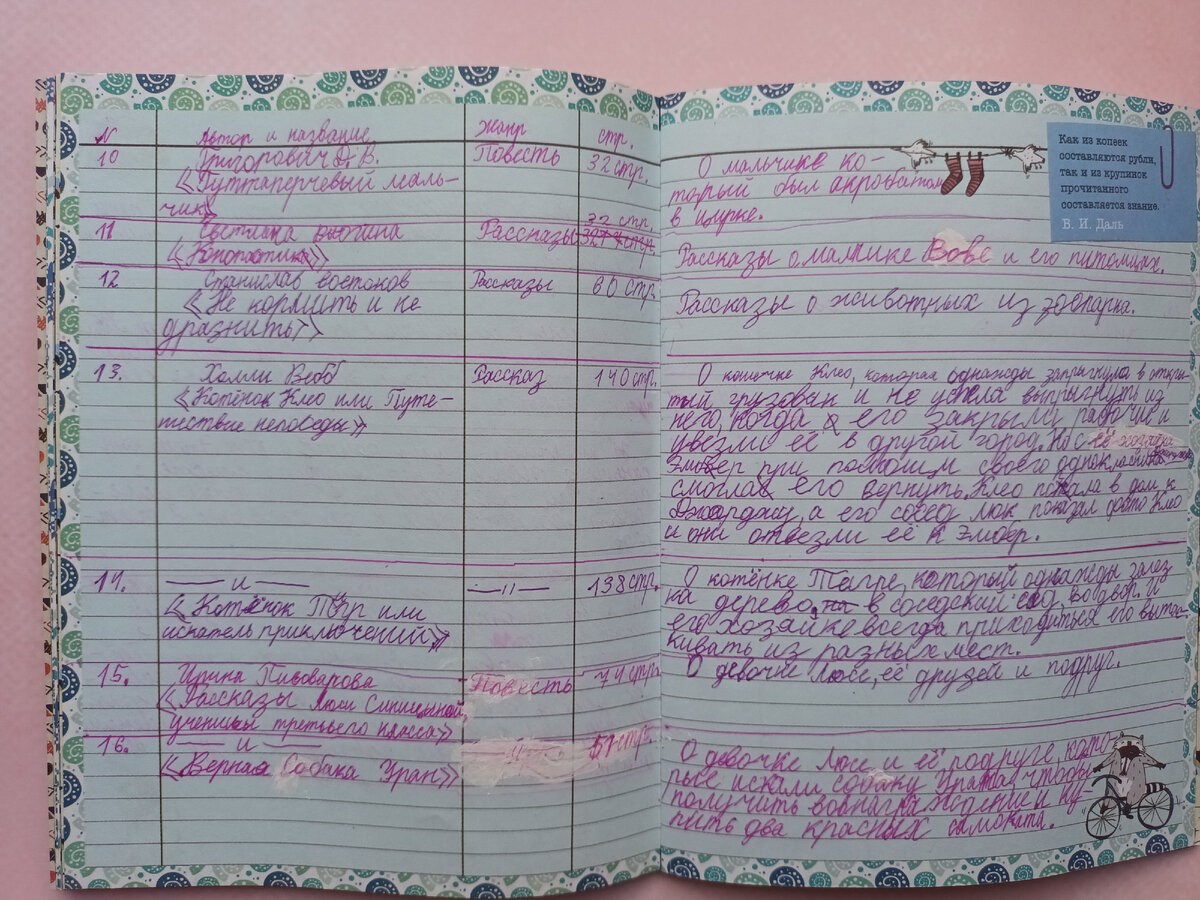 N Автор и название Жанр стр.
10 Григорович Д. В. Повесть 32 стр.
«Гуттаперчевый маль-
чик»
О мальчике ко-
торый был акробатом
в цирке.
Как из копеек
составляются рубли,
так и из крупинок
прочитанного
составляется знание.
В. И. Даль
11 Светлана Рассказы 32 стр.
«Конопатика»
Рассказы о мальчике Вове и его питомцах.
12 Станислав востоков Рассказы 60 стр.
«Не кормить и не
дразнить»
Рассказы о животных из зоопарка.
13. Холли Вебб Рассказ 140 стр.
«Котёнок Клео или Путе-
шествие непоседы»
О кошечке Клео, которая однажды запрыгнула в откры-
тый грузовик и не успела выпрыгнуть из
него, когда его закрыли рабочие и
увезли её в другой город. Но её хозяйка
Эмбер при помощи своего
смогла его вернуть. Клео попала в дом к
а его сосед Люк показал фото Клео
и они отвезли её к Эмбер.
14. —— и —— —— и —— 138 стр.
«Котёнок Тигр или
искатель приключений»
О котёнке Тигре, который однажды залез
на дерево, в соседский сад, во двор. И
его хозяйке всегда приходиться его выта-
кивать из разных мест.
15. Ирина Пивоварова Повесть 74 стр.
«Рассказы Люси Синицыной,
ученицы третьего класса»
О девочке Люсе, её друзей и подруг.
16. —— и —— —— и —— 51 стр.
«Верная Собака Уран»
О девочке Люсе и её подруге, кото-
рые искали собаку Урана, чтобы
получить вознаграждение и ку-
пить два красных самоката.